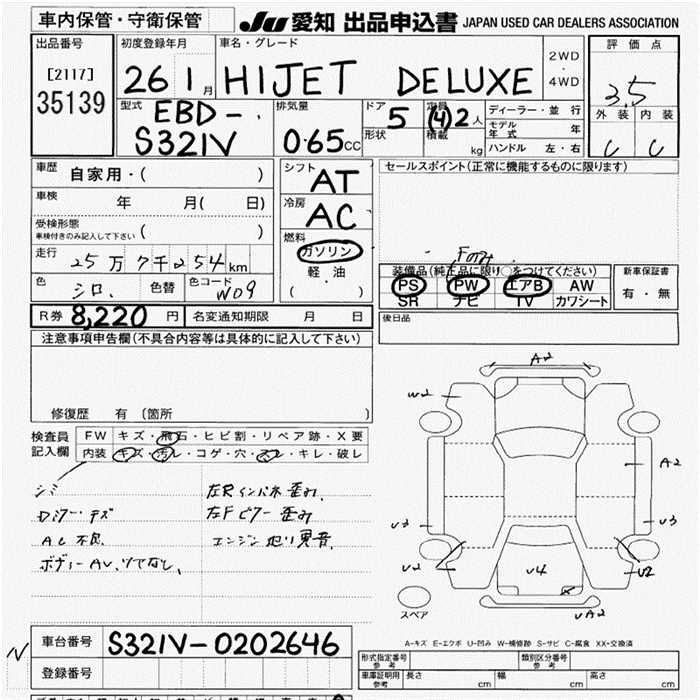 車内保管・守衛保管
JU 愛知 出品申込書 JAPAN USED CAR DEALERS ASSOCIATION
出品番号
[2117]
35139
初度登録年月
26 1月
車名・グレード
HIJET DELUXE
2WD
・
4WD
評価点
3.5
外装 内装
C C
型式
EBD-
S321V
排気量
0.65CC
ドア 5
形状
定員 (4)2人
積載 kg
ディーラー・並行
モデル年式 年
ハンドル 左・右
車歴 自家用・( )
車検 年 月( 日)
受検形態
車検付きのみ記入して下さい ( )
走行 25万7千254km
色 シロ. 色替 色コード W09
シフト AT
冷房 AC
燃料
ガソリン
軽油
( ・ )
セールスポイント(正常に機能するものに限ります)
Fのみ
装備品(純正品に限り○をつけてください)
PS PW エアB AW
SR ナビ TV カワシート
新車保証書
有・無
R券 8,220円 名変通知期限 月 日
後日品
注意事項申告欄(不具合内容等は具体的に記入して下さい)
修復歴 有 (箇所 )
検査員
記入欄
FW キズ・飛石・ヒビ割・リペア跡・X要
内装 キズ・汚レ・コゲ・穴・スレ・キレ・破レ
シミ
AC不良
左Rインパネ歪み
左Fピラー歪み
エンジン 異音.
A2
W2
A2
U3
U3
U2
U2
U4
UA2
スペア
A-キズ E-エクボ U-凹み W-補修跡 S-サビ C-腐食 XX-交換済
N
車台番号 S321V-0202646
登録番号
形式指定番号
参考
類別区分番号
参考
車庫証明用
参考
長さ cm 幅 cm 高さ cm